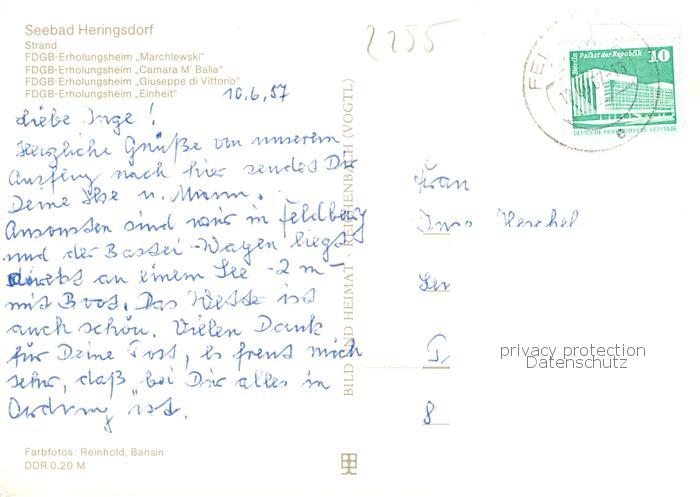 Seebad Heringsdorf
Strand
FDGB-Erholungsheim „Marchlewski"
FDGB-Erholungsheim „Camara M' Balia"
FDGB-Erholungsheim „Giuseppe di Vittorio"
FDGB-Erholungsheim „Einheit"
10.6.87
2255
Liebe Inge!
Herzliche Grüße von unserem
Ausflug nach hier sendet Dir
Deine Ilse u. Mann.
Ansonsten sind wir in Feldberg
und der Bastei-Wagen liegt
direkt an einem See -2 m-
mit Boot. Das Wetter ist
auch schön. Vielen Dank
für Deine Post, es freut mich
sehr, daß bei Dir alles in
Ordnung ist.
Farbfotos: Reinhold, Bansin
DDR 0,20 M
BILD UND HEIMAT · REICHENBACH (VOGTL)
FEL
Berlin Palast der Republik 10
DEUTSCHE DEMOKRATISCHE REPUBLIK
e
Frau
Herschel
8
privacy protection
Datenschutz